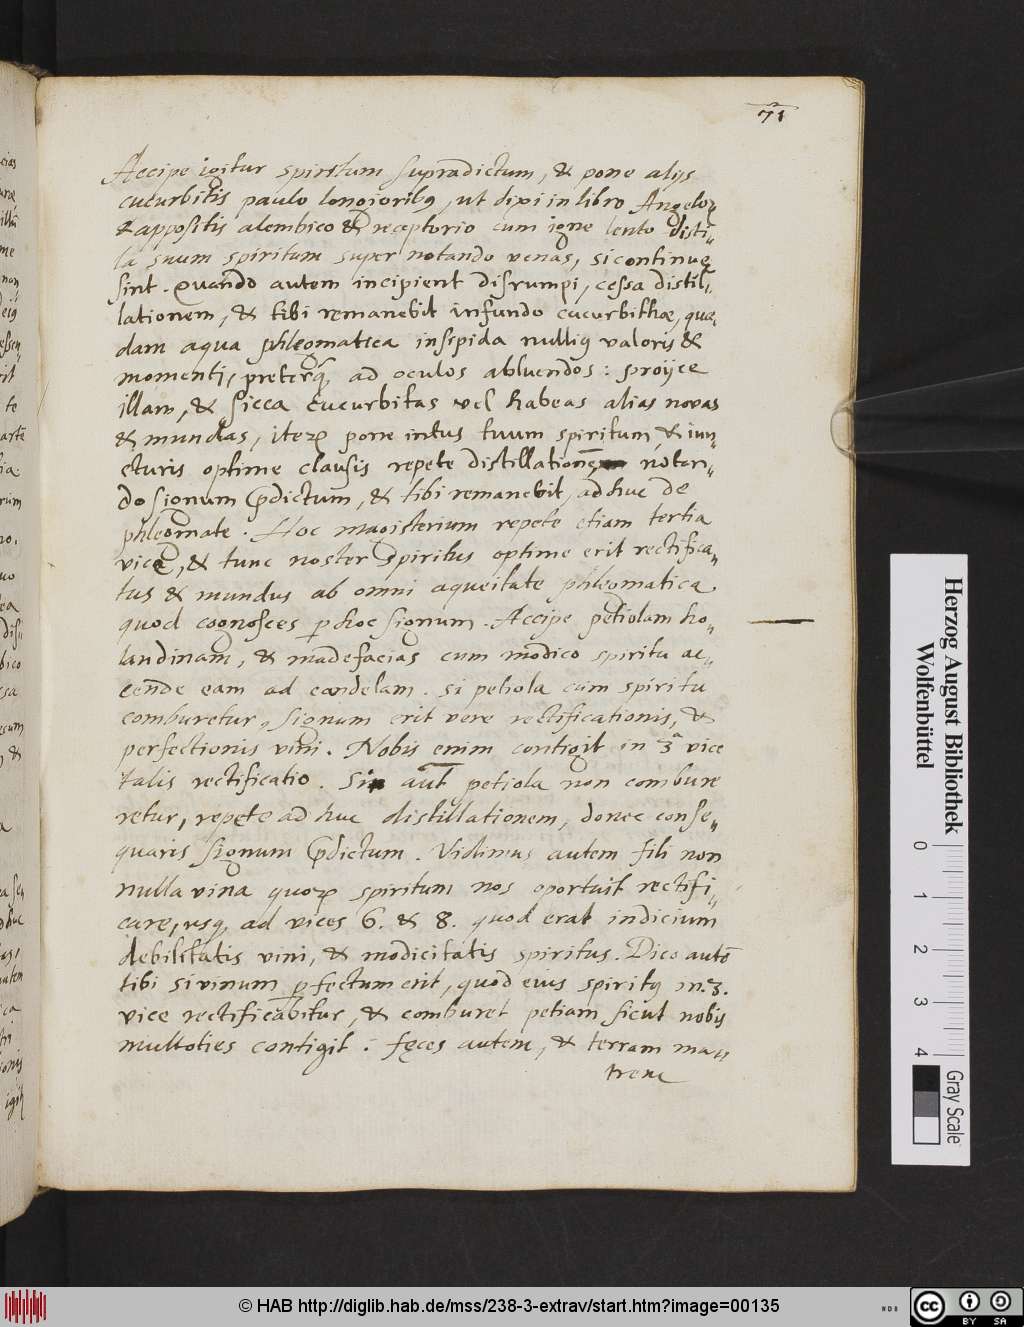 71
Accipe igitur spiritum supradictum, & pone alijs
cucurbitis paulo longioribꝰ, ut dixi in libro Angeloꝝ
& appositis alembico & receptorio cum igne lento disti„
la suum spiritum super notando venas, si continuę
sint. Quando autem incipient disrumpi, cessa distil„
lationem, & tibi remanebit in fundo cucurbithæ, quæ„
dam aqua phlegmatica insipida nulliꝰ valoris &
momenti, preterq̃ ad oculos abluendos: proijce
illam, & sicca cucurbitas vel habeas alias novas
& mundas, iteꝝ pone intus tuum spiritum, & iun„
cturis optime clausis repete distillationē notan„
do signum p̄dictum, & tibi remanebit, ad huc de
phlegmate. Hoc magisterium repete etiam tertia
vice, & tunc noster spiritus optime erit rectifica„
tus & mundus ab omni aqueitate phlegmatica.
quod cognosces ꝑ hoc signum. Accipe petiolam ho„
landinam, & madefacias cum modico spiritu ac„
cende eam ad candelam. si petiola cum spiritu
comburetur, signum erit vere rectificationis, &
perfectionis vini. Nobis enim contigit in 3ᵃ vice
talis rectificatio. Si aūt petiola non combure
retur, repete ad huc distillationem, donec conse„
quaris signum p̄dictum. Vidimus autem fili non
nulla vina quoꝝ spiritum nos oportuit rectifi„
care, usq̃ ad vices 6. & 8. quod erat indicium
debilitatis vini, & modicitatis spiritus. Dico autē
tibi si vinum ꝑfectum erit, quod eius spiritꝰ in .3.
vice rectificabitur, & comburet petiam sicut nobis
multoties contigit: fęces autem, & terram ma„
trem
Herzog August Bibliothek
Wolfenbüttel
0 1 2 3 4
Gray Scale
© HAB http://diglib.hab.de/mss/238-3-extrav/start.htm?image=00135
cc BY SA